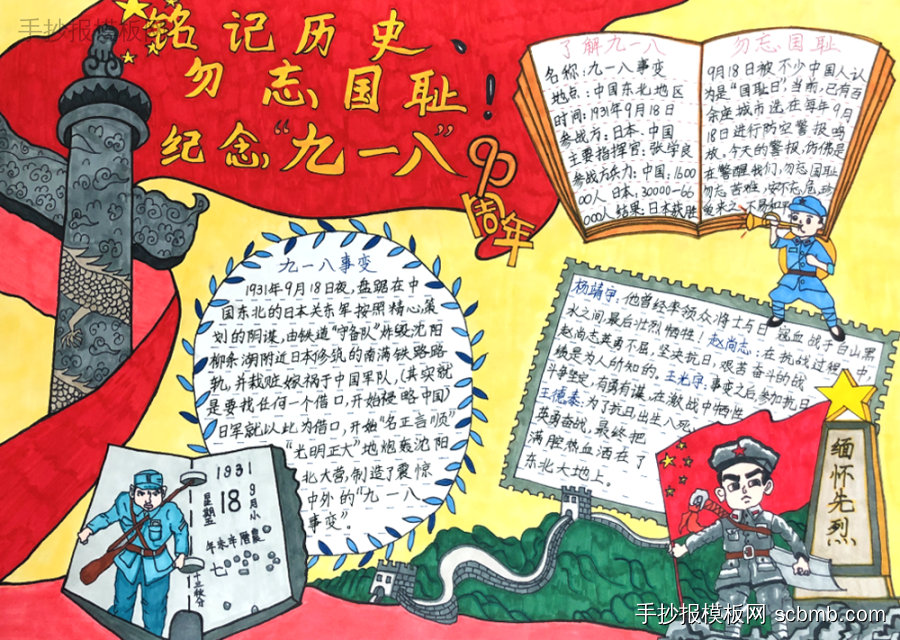 手抄报模板网
铭记历史、
勿忘国耻!
纪念"九一八"
90
周年
了解九一八
名称:九一八事变
地点:中国东北地区
时间:1931年9月18日
参战方:日本、中国
主要指挥官:张学良
参战方兵力:中国:1600
00人 日本:30000-66
000人 结果:日本获胜
勿忘国耻
9月18日被不少中国人认
为是"国耻日",当前,已有百
余座城市选在每年9月
18日进行防空警报鸣
放。今天的警报,仿佛是
在警醒我们,勿忘国耻
勿忘苦难,安不忘危,珍
九一八事变
1931年9月18日夜,盘踞在中
国东北的日本关东军按照精心策
划的阴谋,由铁道"守备队"炸毁沈阳
柳条湖附近日本修筑的南满铁路路
轨,并栽赃嫁祸于中国军队,(其实就
是要找任何一个借口,开始侵略中国)
日军就以此为借口,开始"名正言顺"
"光明正大"地炮轰沈阳
北大营,制造了震惊
中外的"九一八
事变"。
杨靖宇:他曾经率领众将士与日寇血战于白山黑
水之间,最后壮烈牺牲!赵尚志:在抗战过程中,
赵尚志英勇不屈,坚决抗日,艰苦奋斗的战
绩是为人所知的。王光宇:事变之后,参加抗日
斗争坚定,有勇有谋,在激战中牺牲
王德泰:为了抗日出生入死,
英勇奋战,最终把
满腔热血洒在了
东北大地上。
1931
9月小
18
星期五
年未辛
七
缅怀先烈
手抄报模板网 scbmb.com